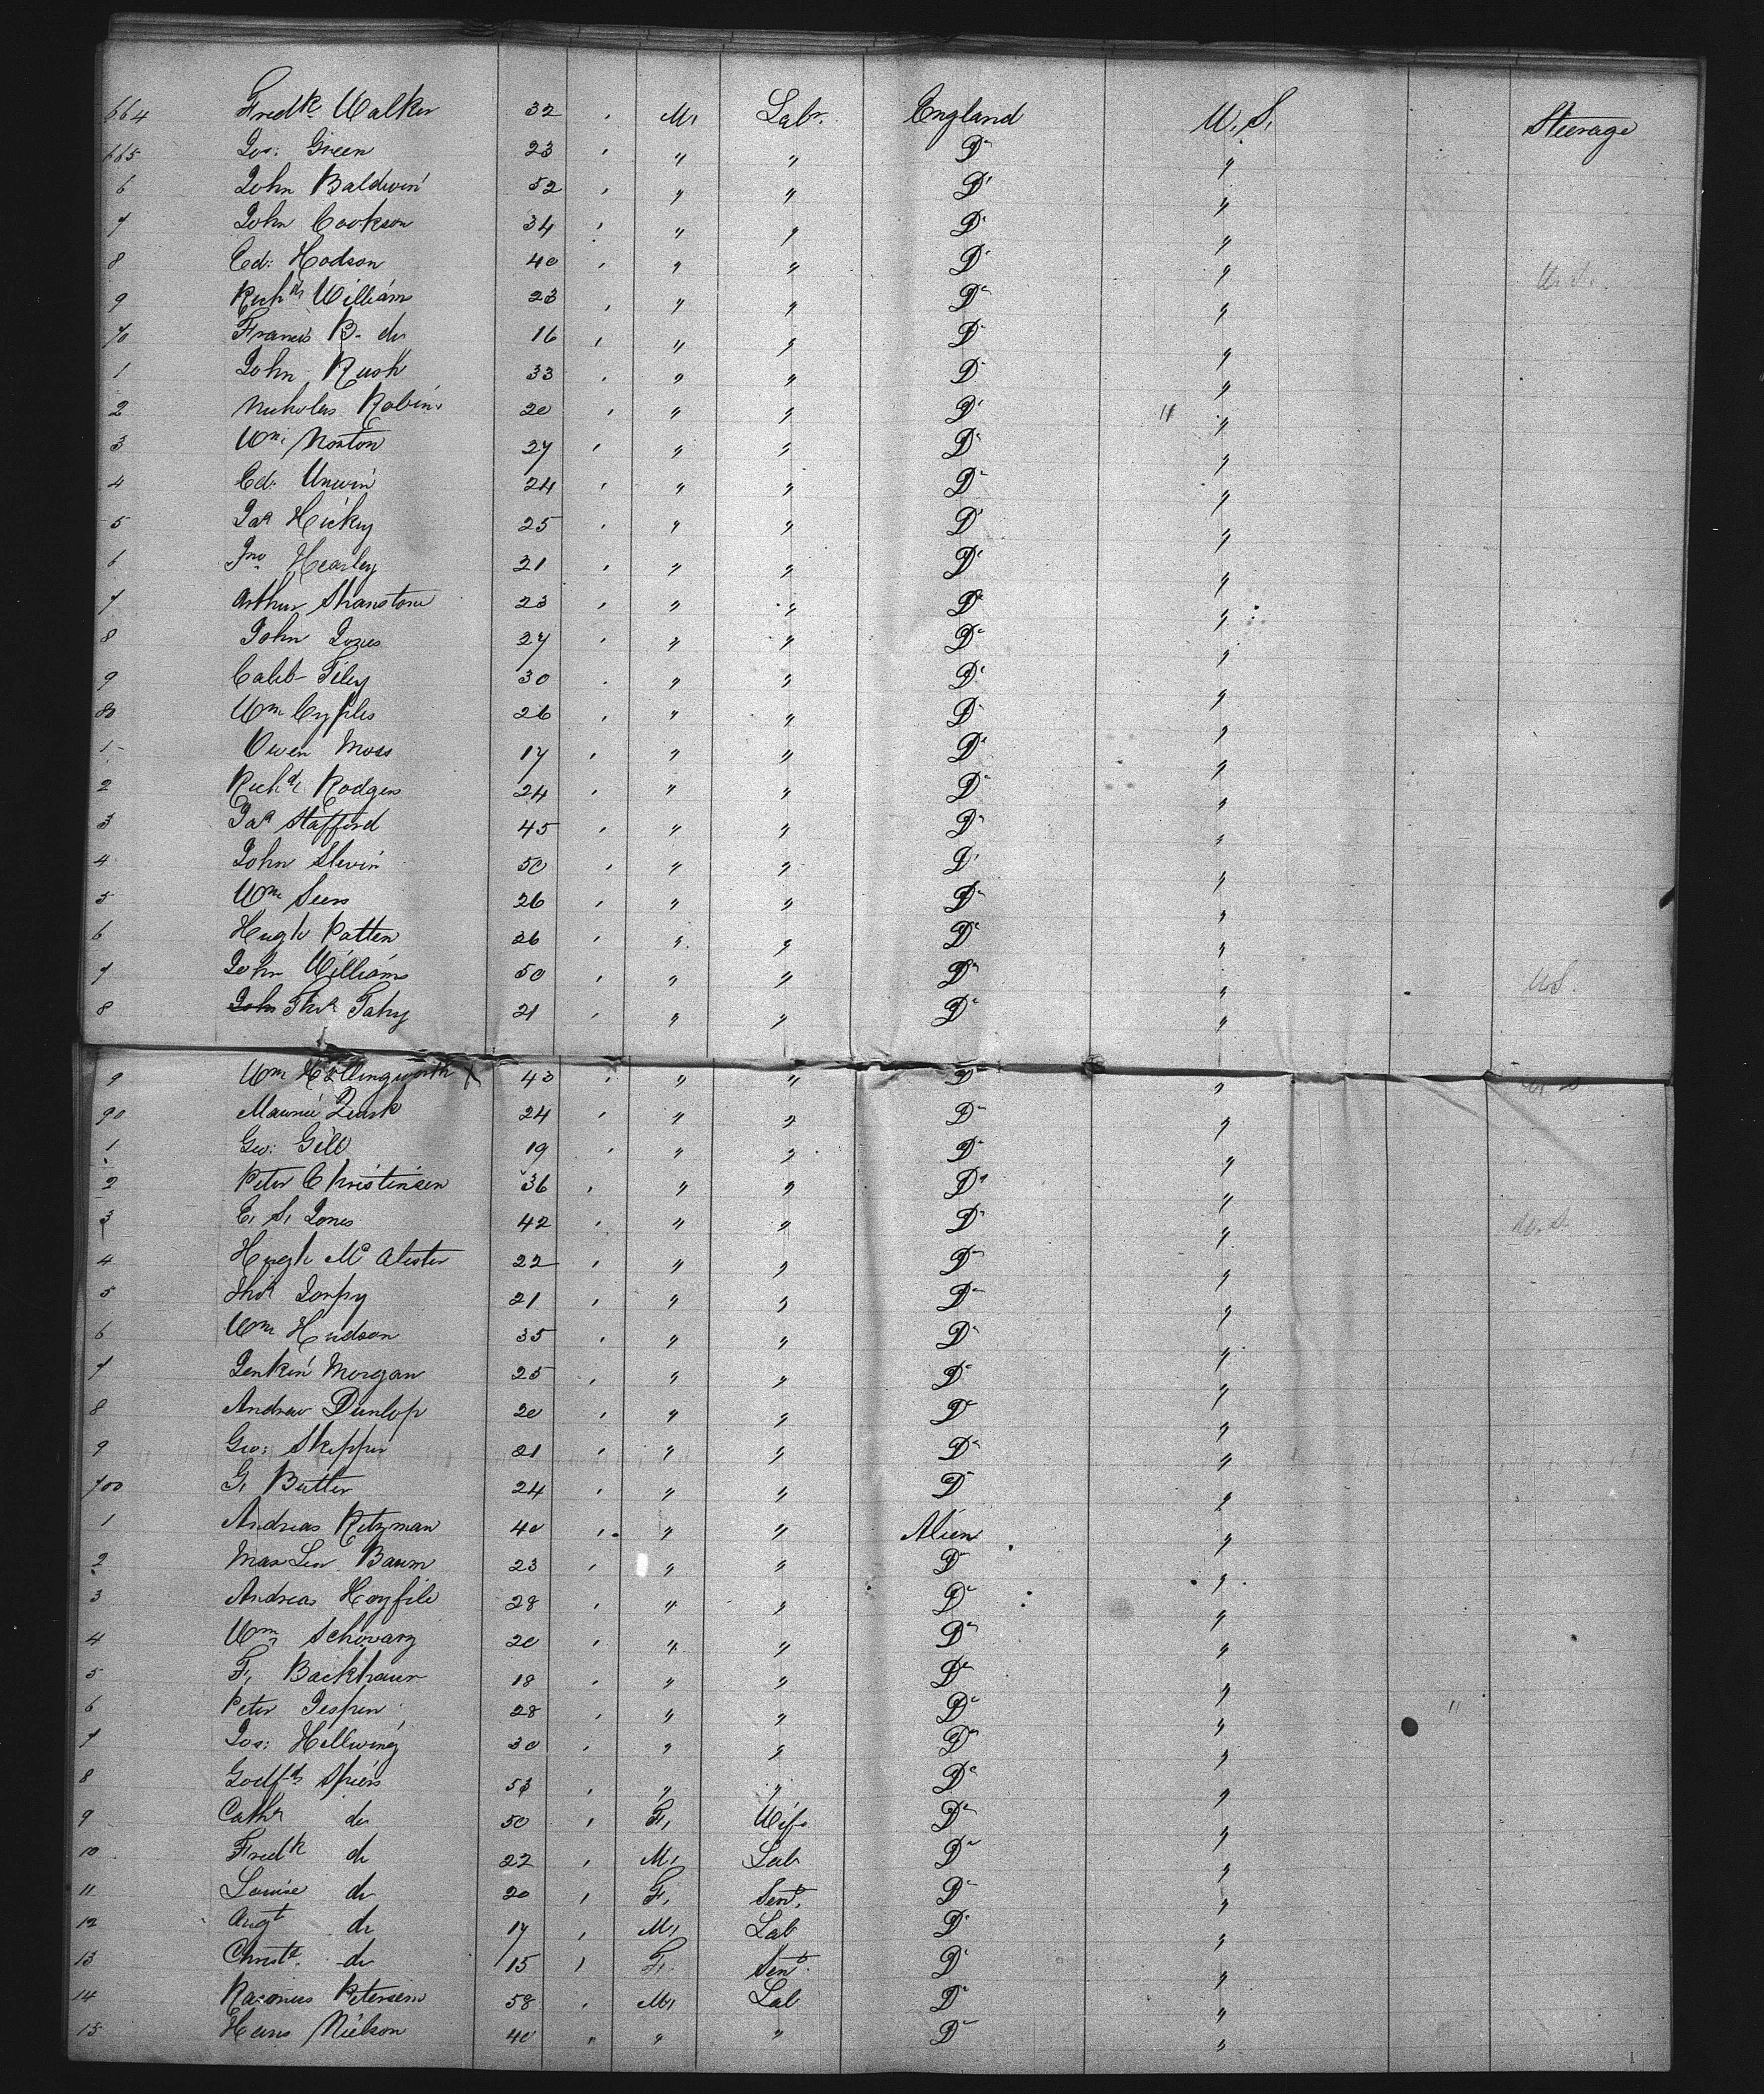 664 Fredk. Walker 32 , M, Labr. England U. S. Steerage
665 Jos: Green 23 , " " Do "
6 John Baldwin 52 , " " Do "
7 John Cookson 34 , " " Do "
8 Ed: Hodson 40 , " " Do " U. S.
9 Richd. William 23 , " " Do "
70 Francis B. do 16 , " " Do "
1 John Rush 33 , " " Do "
2 Nicholas Robins 20 , " " Do " "
3 Wm. Norton 27 , " " Do "
4 Ed: Unwin 24 , " " Do "
5 Jas Hickey 25 , " " Do "
6 Jno Hearley 21 , " " Do "
7 Arthur Shanstone 23 , " " Do "
8 John Jones 27 , " " Do "
9 Caleb Filey 30 , " " Do "
80 Wm Cyples 26 , " " Do "
1 Owen Moss 17 , " " Do "
2 Richd. Rodgers 24 , " " Do "
3 Jas Stafford 45 , " " Do "
4 John Slevin 50 , " " Do "
5 Wm. Seers 26 , " " Do "
6 Hugh Patten 26 , " " Do "
7 John Williams 50 , " " Do " U.S.
8 John Thos Fahy 21 , " " Do "
9 Wm Hollingworth X 43 , " " Do " U S
90 Maurice 24 , " " Do "
1 Geo: Gill 19 , " " Do "
2 Peter Christinsen 36 , " " Do "
3 E. S. Jones 42 , " " Do " U. S.
4 Hugh Mc Alister 22 , " " Do "
5 Thos 21 , " " Do "
6 Wm. Hudson 35 , " " Do "
7 Jenkin Morgan 25 , " " Do "
8 Andrew Dunlop 20 , " " Do "
9 Geo: Skipper 21 , " " Do "
700 G. Butler 24 , " " Do "
1 Andreas Ritzman 40 , " " Alien "
2 Max Leo Baum 23 , " " Do "
3 Andreas Hoyfile 28 , " " Do "
4 Wm. Schwarz 20 , " " Do "
5 F, Backhaus 18 , " " Do "
6 Peter Jespen 28 , " " Do " "
7 Jos: Hellwing 30 , " " Do "
8 Godfd. Spiers 53 , " " Do "
9 Cathe do 50 , F, Wife Do "
10 Fredk do 22 , M, Lab Do "
11 Louise do 20 , F, Sert. Do "
12 Augt do 17 , M, Lab Do "
13 Christe. do 15 , F. Sert. Do "
14 Rasmus Petersen 58 , M, Lab Do "
15 Hans Nielson 40 " " " Do "